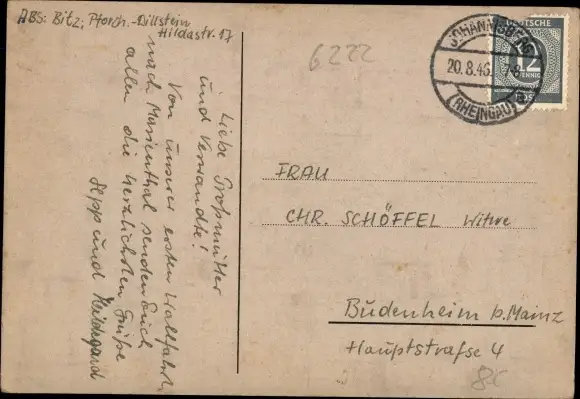 ABS: Bitz, Pforzh.-Dillstein
Hildastr. 17
Liebe Großmutter
und Verwandte!
Von unserer ersten Wallfahrt
nach Marienthal senden Euch
allen die herzlichsten Grüße
Sepp und Hildegard
6222
JOHANNISBERG
20.8.46. 7-8
(RHEINGAU)
DEUTSCHE
12
PFENNIG
FRAU
CHR. SCHÖFFEL Witwe
Budenheim b. Mainz
Hauptstraße 4